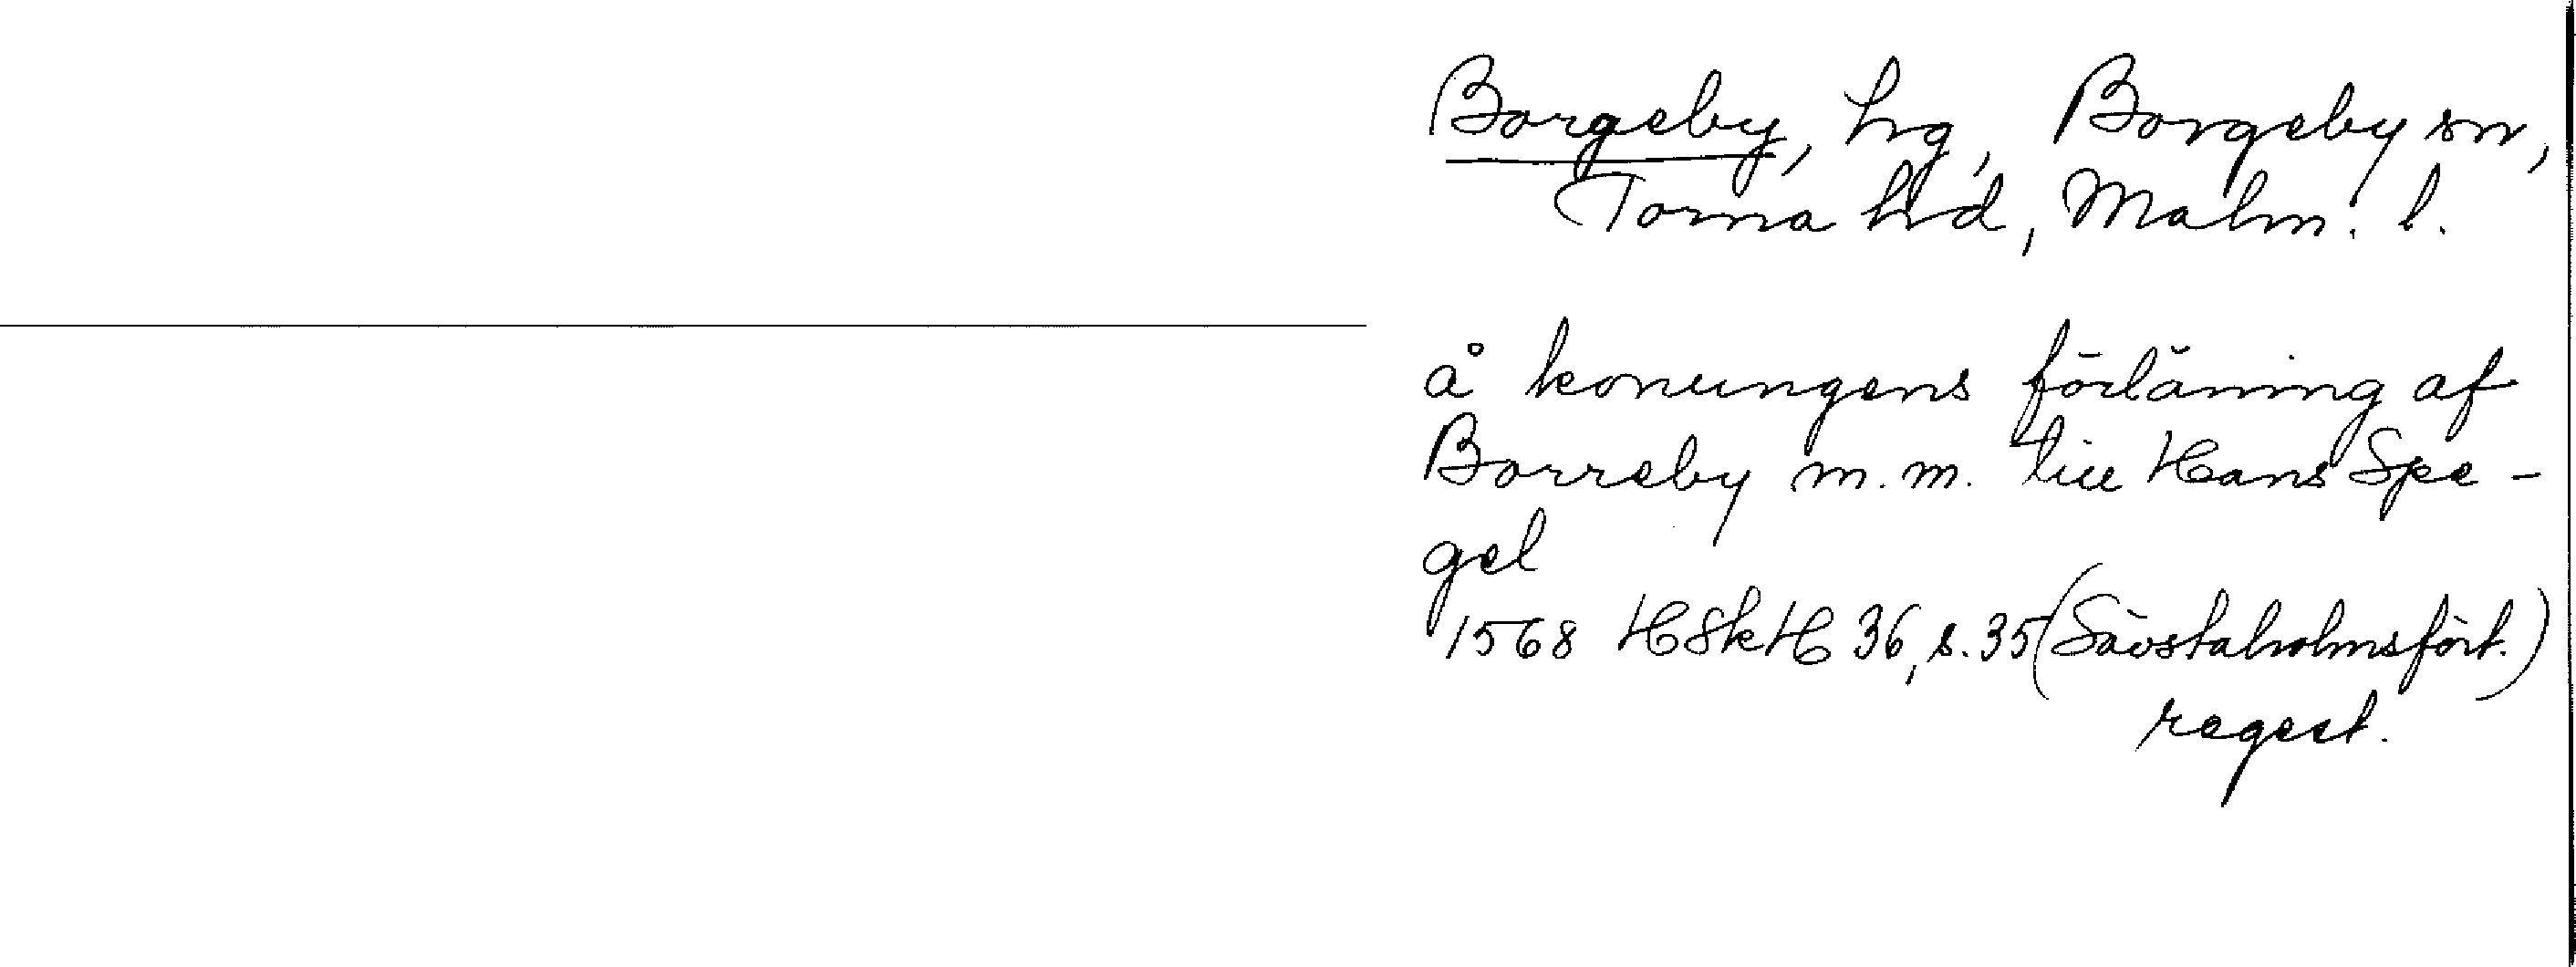 Borgeby, hg, Borgeby sn,
Torna hd, Malm. l.
å konungens förläning af
Borreby m.m. till Hans Spe-
gel
1568 HSkH 36, s. 35 (Sävstaholmsfört.)
regest.